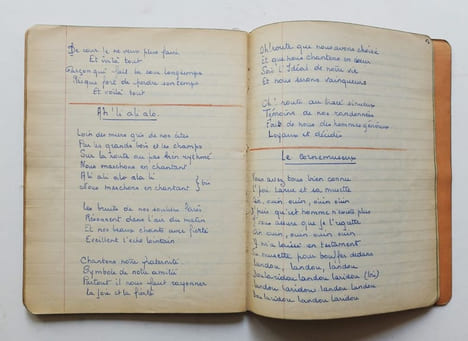 De cour il ne veux plus faire
Et voilà tout
Garçon qui fait la cour longtemps
Risque fort de perdre son temps
Et voilà tout
Ah! li ali alo.
Loin des murs gris de nos cités
Par les grands bois et les champs
Sur la route au pas bien rythmé
Nous marchons en chantant
Ali ali alo ala li
Nous marchons en chantant } bis
Les bruits de nos souliers
Résonnent dans l'air du matin
Et nos beaux chants avec fierté
Eveillent l'écho lointain
Chantons notre fraternité
Symbole de notre amitié
Partout il nous faut rayonner
La joie et la fierté
Oh! route que nous avons choisi
Et que nous chantons en cœur
Sois l'Idéal de notre vie
Et nous serons vainqueurs
Oh! route au tracé sinueux
Témoins de nos randonnées
Fais de nous des hommes généreux
Loyaux et décidés
Le Cornemuseux
Vous avez tous bien connu
L'joi Larue et sa musette
ouin, ouin, ouin, ouin
J'pens qu'cet homme n'revéte plus
J'vous assure que je l'regrette
ouin, ouin, ouin, ouin
Il m'a laissé en testament
Sa musette pour bouffer dedans
Landou, landou, landou
Dou laridou landou laridou (bis)
landou laridou landou landou
Dou laridou landou laridou